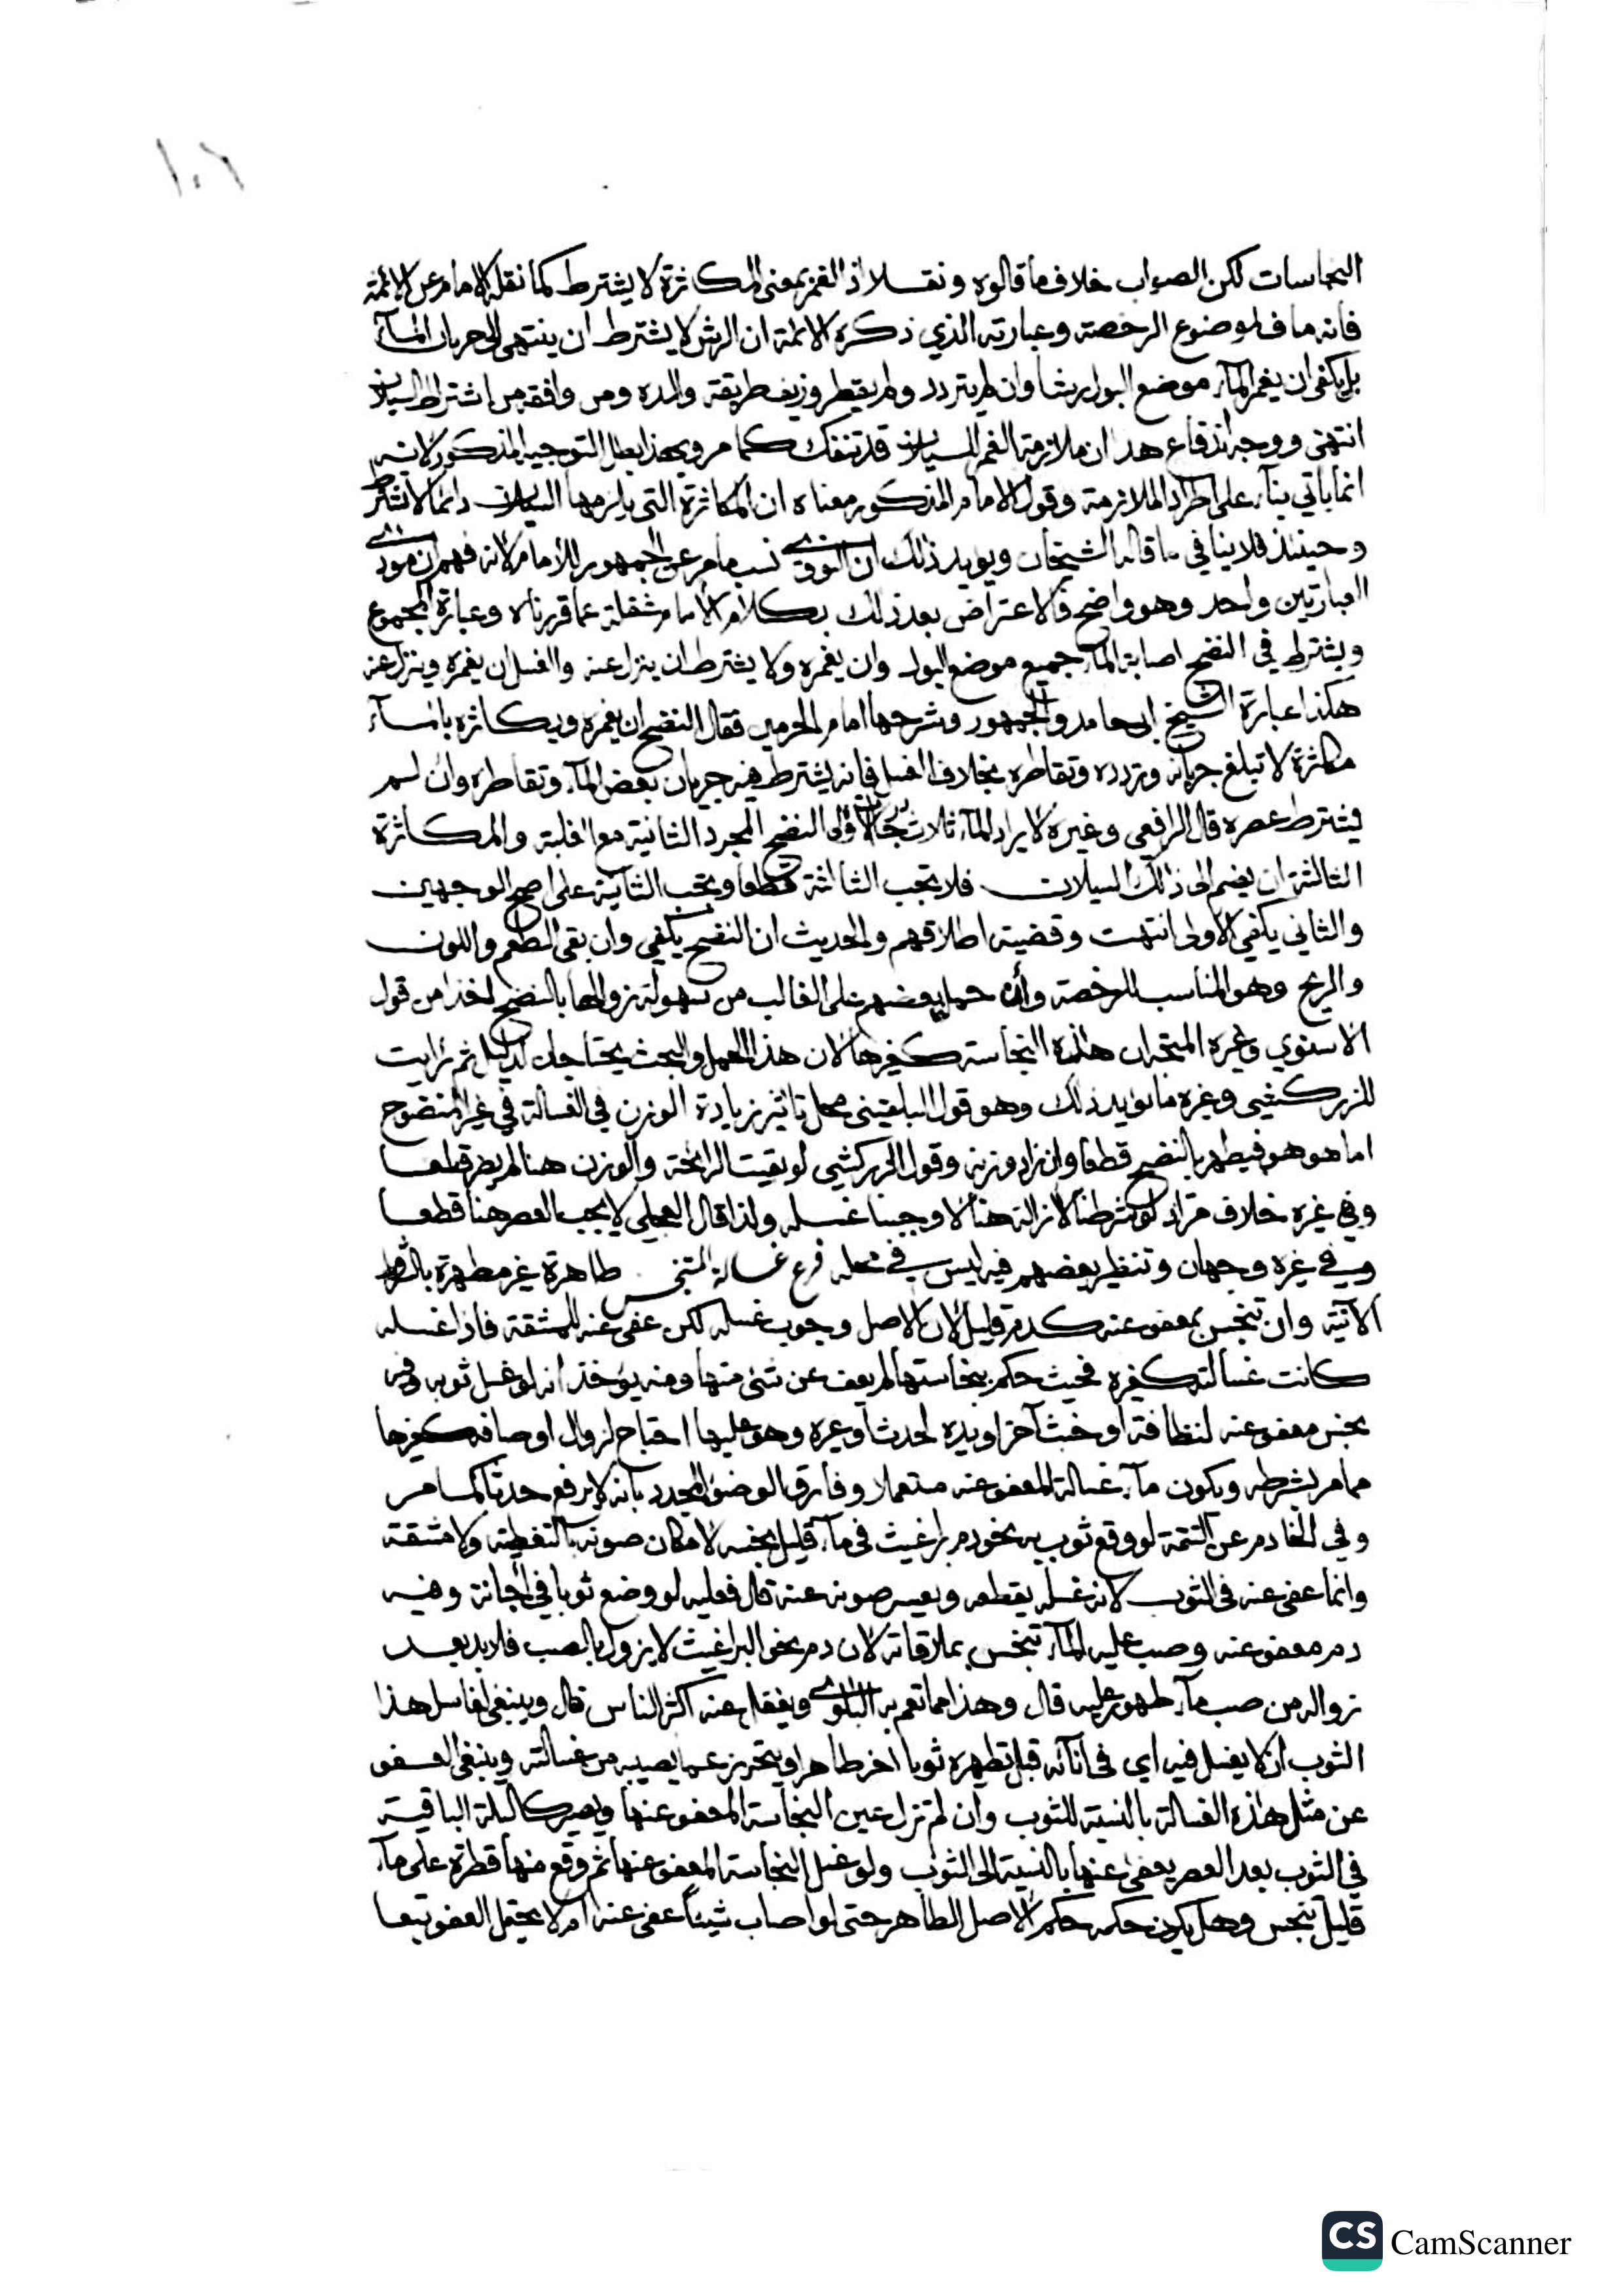 ١٠٦
النجاسات لكن الصواب خلاف ما قالوه ونقلا اذ الغمر بمعنى المكاثرة لا يشترط كما نقله الامام عن الائمة
فانه مناف لموضوع الرخصة وعبارته الذي ذكره الائمة ان الرش لا يشترط ان ينتهى الى جريان المآء
بل يكفى ان يغمر المآء موضع البول رشا وان لم يتردد ولم يقطر وزيف طريقة والده ومن وافقه من اشتراط السيلان
انتهى ووجه اندفاع هذا ان ملازمة الغمر للسيلان قد تنفك كما مر وبهذا بطل التوجيه المذكور لانه
انما ياتي بنآء على اطراد الملازمة وقول الامام المذكور معناه ان المكاثرة التى يلزمها السيلان دائما لا تشترط
وحينئذ فلا ينافي ما قاله الشيخان ويويد ذلك ان النووي نسب ما مر عن الجمهور للامام لانه فهم ان مودى
العبارتين واحد وهو واضح فالاعتراض بعد ذلك بكلام الامام غفلة عما قررناه وعبارة المجموع
ويشترط في النضح اصابة المآء جميع موضع البول وان يغمره ولا يشترط ان ينزل عنه والغسل ان يغمره وينزل عنه
هكذا عبارة الشيخ ابى حامد والجمهور وشرحها امام الحرمين فقال النضح ان يغمره ويكاثره بالمآء
مكاثرة لا تبلغ جريانه وتردده وتقاطره بخلاف الغسل فانه يشترط فيه جريان بعض المآء وتقاطره وان لم
يشترط عصره قال الرافعي وغيره لايراد المآء ثلاث درجات الاولى النضح المجرد الثانية مع الغلبة والمكاثرة
الثالثة ان يضم الى ذلك السيلان فلا تجب الثالثة قطعا وتجب الثانية على اصح الوجهين
والثاني يكفي الاولى انتهت وقضية اطلاقهم والحديث ان النضح يكفي وان بقى الطعم واللون
والريح وهو المناسب للرخصة وان حمله بعضهم على الغالب من سهولة زوالها بالنضح اخذا من قول
الاسنوي وغيره المتجه ان هذه النجاسة كغيرها لان هذا الحمل والبحث يحتاجان لدليل ثم رايت
للزركشي وغيره ما يويد ذلك وهو قول البلقيني محل تاثير زيادة الوزن في الغسالة في غير المنضوح
اما هو فيطهر بالنضح قطعا وان زاد وزنه وقول الزركشي لو بقيت الرائحة والوزن هنا لم يضر قطعا
وفي غيره خلاف مر اذ لو شرطنا الازالة هنا لاوجبنا غسله ولذا قال العجلي لا يجب العصر هنا قطعا
وفي غيره وجهان وتنظير بعضهم فيه ليس في محله فرع غسالة المتنجس طاهرة غير مطهرة بالشروط
الآتية وان تنجس بمعفو عنه كدم قليل لان الاصل وجوب غسله لكن عفى عنه للمشقة فاذا غسله
كانت غسالته كغيره فحيث حكم بنجاستها لم يعف عن شئ منها ومنه يؤخذ انه لو غسل ثوبه وفيه
نجس معفو عنه لنظافة او خبث آخر او يده لحدث او غيره وهو عليها احتاج لزوال اوصافه كغيرها
مما مر بشرطه ويكون مآء غسالة المعفو عنه مستعملا وفارق الوضوء المجدد بانه لا يرفع حدثا كما مر
وفي الخادم عن التتمة لو وقع ثوب به نحو دم براغيث في مآء قليل نجسه لامكان صونه بالتغطية ولا مشقة
وانما عفى عنه في الثوب لان غسله يقطعه ويعسر صونه عنه قال فعليه لو وضع ثوبا في اجانة وفيه
دم معفو عنه وصب عليه المآء تنجس بملاقاته لان دم نحو البراغيث لا يزول بالصب فلا بد بعد
زواله من صب مآء طهور عليه قال وهذا مما تعم به البلوى ويغفل عنه اكثر الناس قال وينبغى لغاسل هذا
الثوب ان لا يغسل فيه اي في انآئه قبل تطهيره ثوبا اخر طاهرا ويتحرز عما يصيبه من غسالته وينبغى العفو
عن مثل هذه الغسالة بالنسبة للثوب وان لم تزل عين النجاسة المعفو عنها ويصير كالبلة الباقية
في الثوب بعد العصر يعفى عنها بالنسبة الى الثوب ولو غسل النجاسة المعفو عنها ثم وقع منها قطرة على مآء
قليل تنجس وهل يكون حكمه حكم الاصل الطاهر حتى لو اصاب شيئا عفى عنه ام لا يحتمل العفو تبعا
CS CamScanner